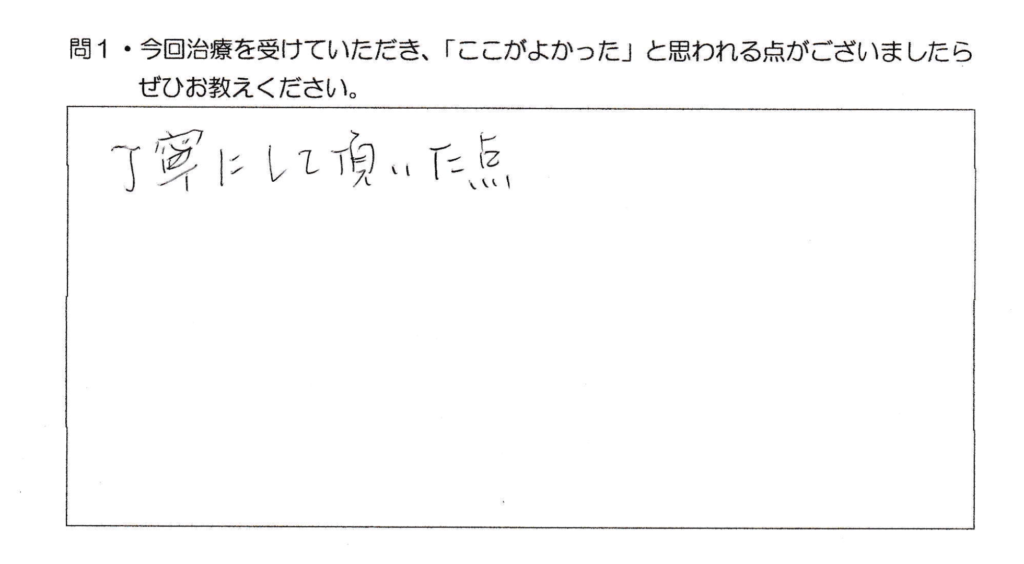 問1・今回治療を受けていただき、「ここがよかった」と思われる点がございましたら
ぜひお教えください。
丁寧にして頂いた点